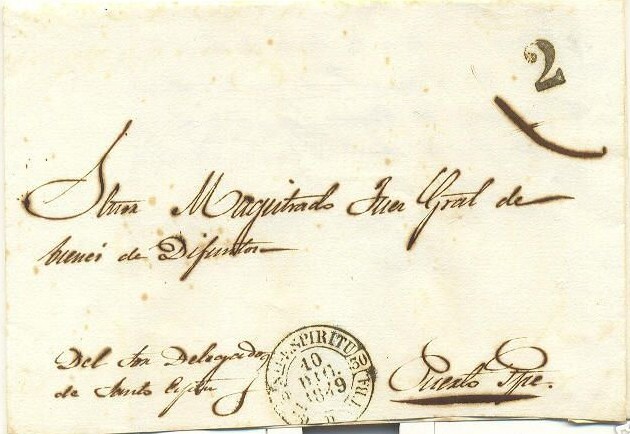 2
Sor Magistrado Juez Gral de
bienes de Difuntos
Del Sor Delegado
de Santo Espiritu
STI-SPIRITUS
10
DIC.
1849
Puerto Ppe.